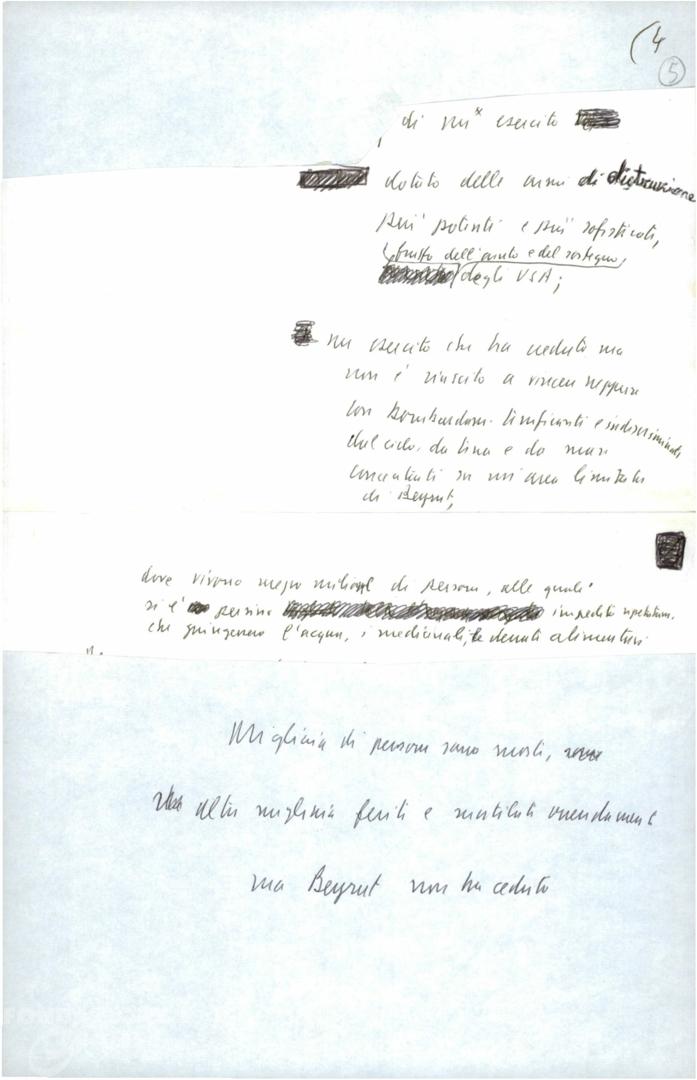 (4
5
di un esercito
dotato delle armi di distruzione
più potenti e più sofisticati,
frutto dell'aiuto e del sostegno,
degli USA;
un esercito che ha ucciso ma
non è riuscito a vincere neppure
con bombardam. terrificanti e indiscriminati
dal cielo, da terra e da mare
concentrati su un'area limitata
di Beyrut,
dove vivono mezzo milione di persone, alle quali
si è persino impedito ripetutam.
che giungessero l'acqua, i medicinali, le derrate alimentari
Migliaia di persone sono morti,
altre migliaia feriti e mutilati orrendament
ma Beyrut non ha ceduto